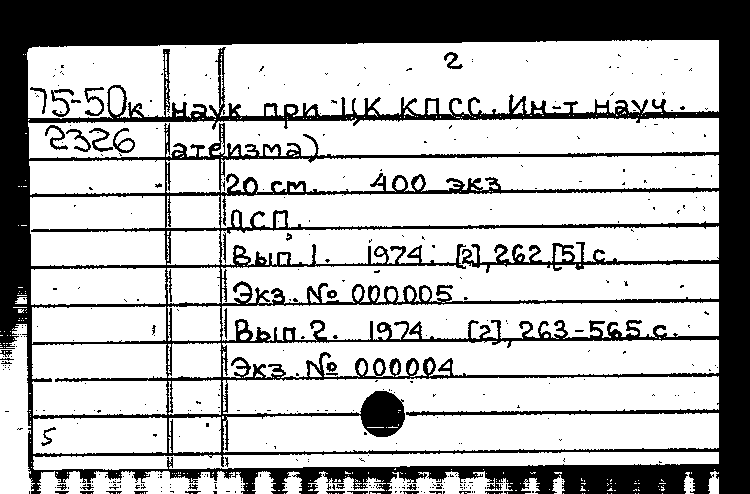 2
75-50к наук при ЦК КПСС. Ин-т науч.
2326 атеизма)
20 см. 400 экз
ДСП.
Вып.1. 1974. [2], 262 [5] с.
Экз. № 000005.
Вып.2. 1974. [2], 263-565 с.
Экз. № 000004.
5